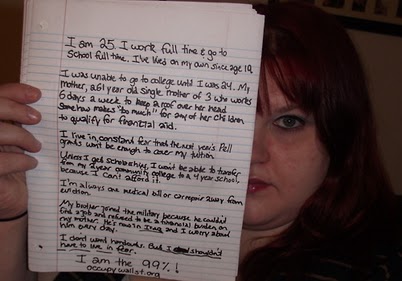 I am 25. I work full time & go to
School full time. I've lived on my own since age 19.
I was unable to go to college until I was 24. My
Mother, a 61 year old single mother of 3 who works
6 days a week to keep a roof over her head
Somehow makes "too much" for any of her children
to qualify for financial aid.
I live in constant fear that the next year's Pell
grants won't be enough to cover my tuition.
Unless I get scholarships, I won't be able to transfer
from my silver community college to a 4 year school,
because I can't afford it.
I'm always one medical bill or car repair away from
eviction.
My brother joined the military because he couldn't
find a job and refused to be a financial burden on
my mother. He's now in Iraq and I worry about
him every day.
I don't want handouts. But I shouldn't
have to live in fear.
I am the 99%!
occupywallst.org